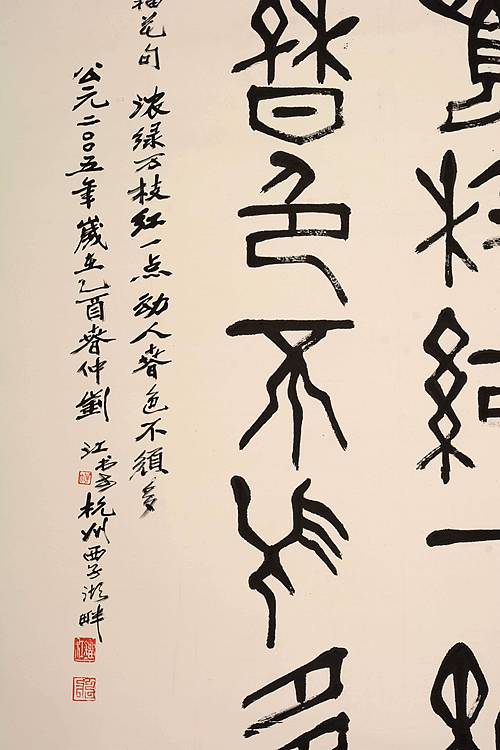 枝紅一
春色不須多
花句 浓绿万枝红一点动人春色不須多
公元二〇〇五年歲在乙酉春仲劉江书于杭州西子湖畔